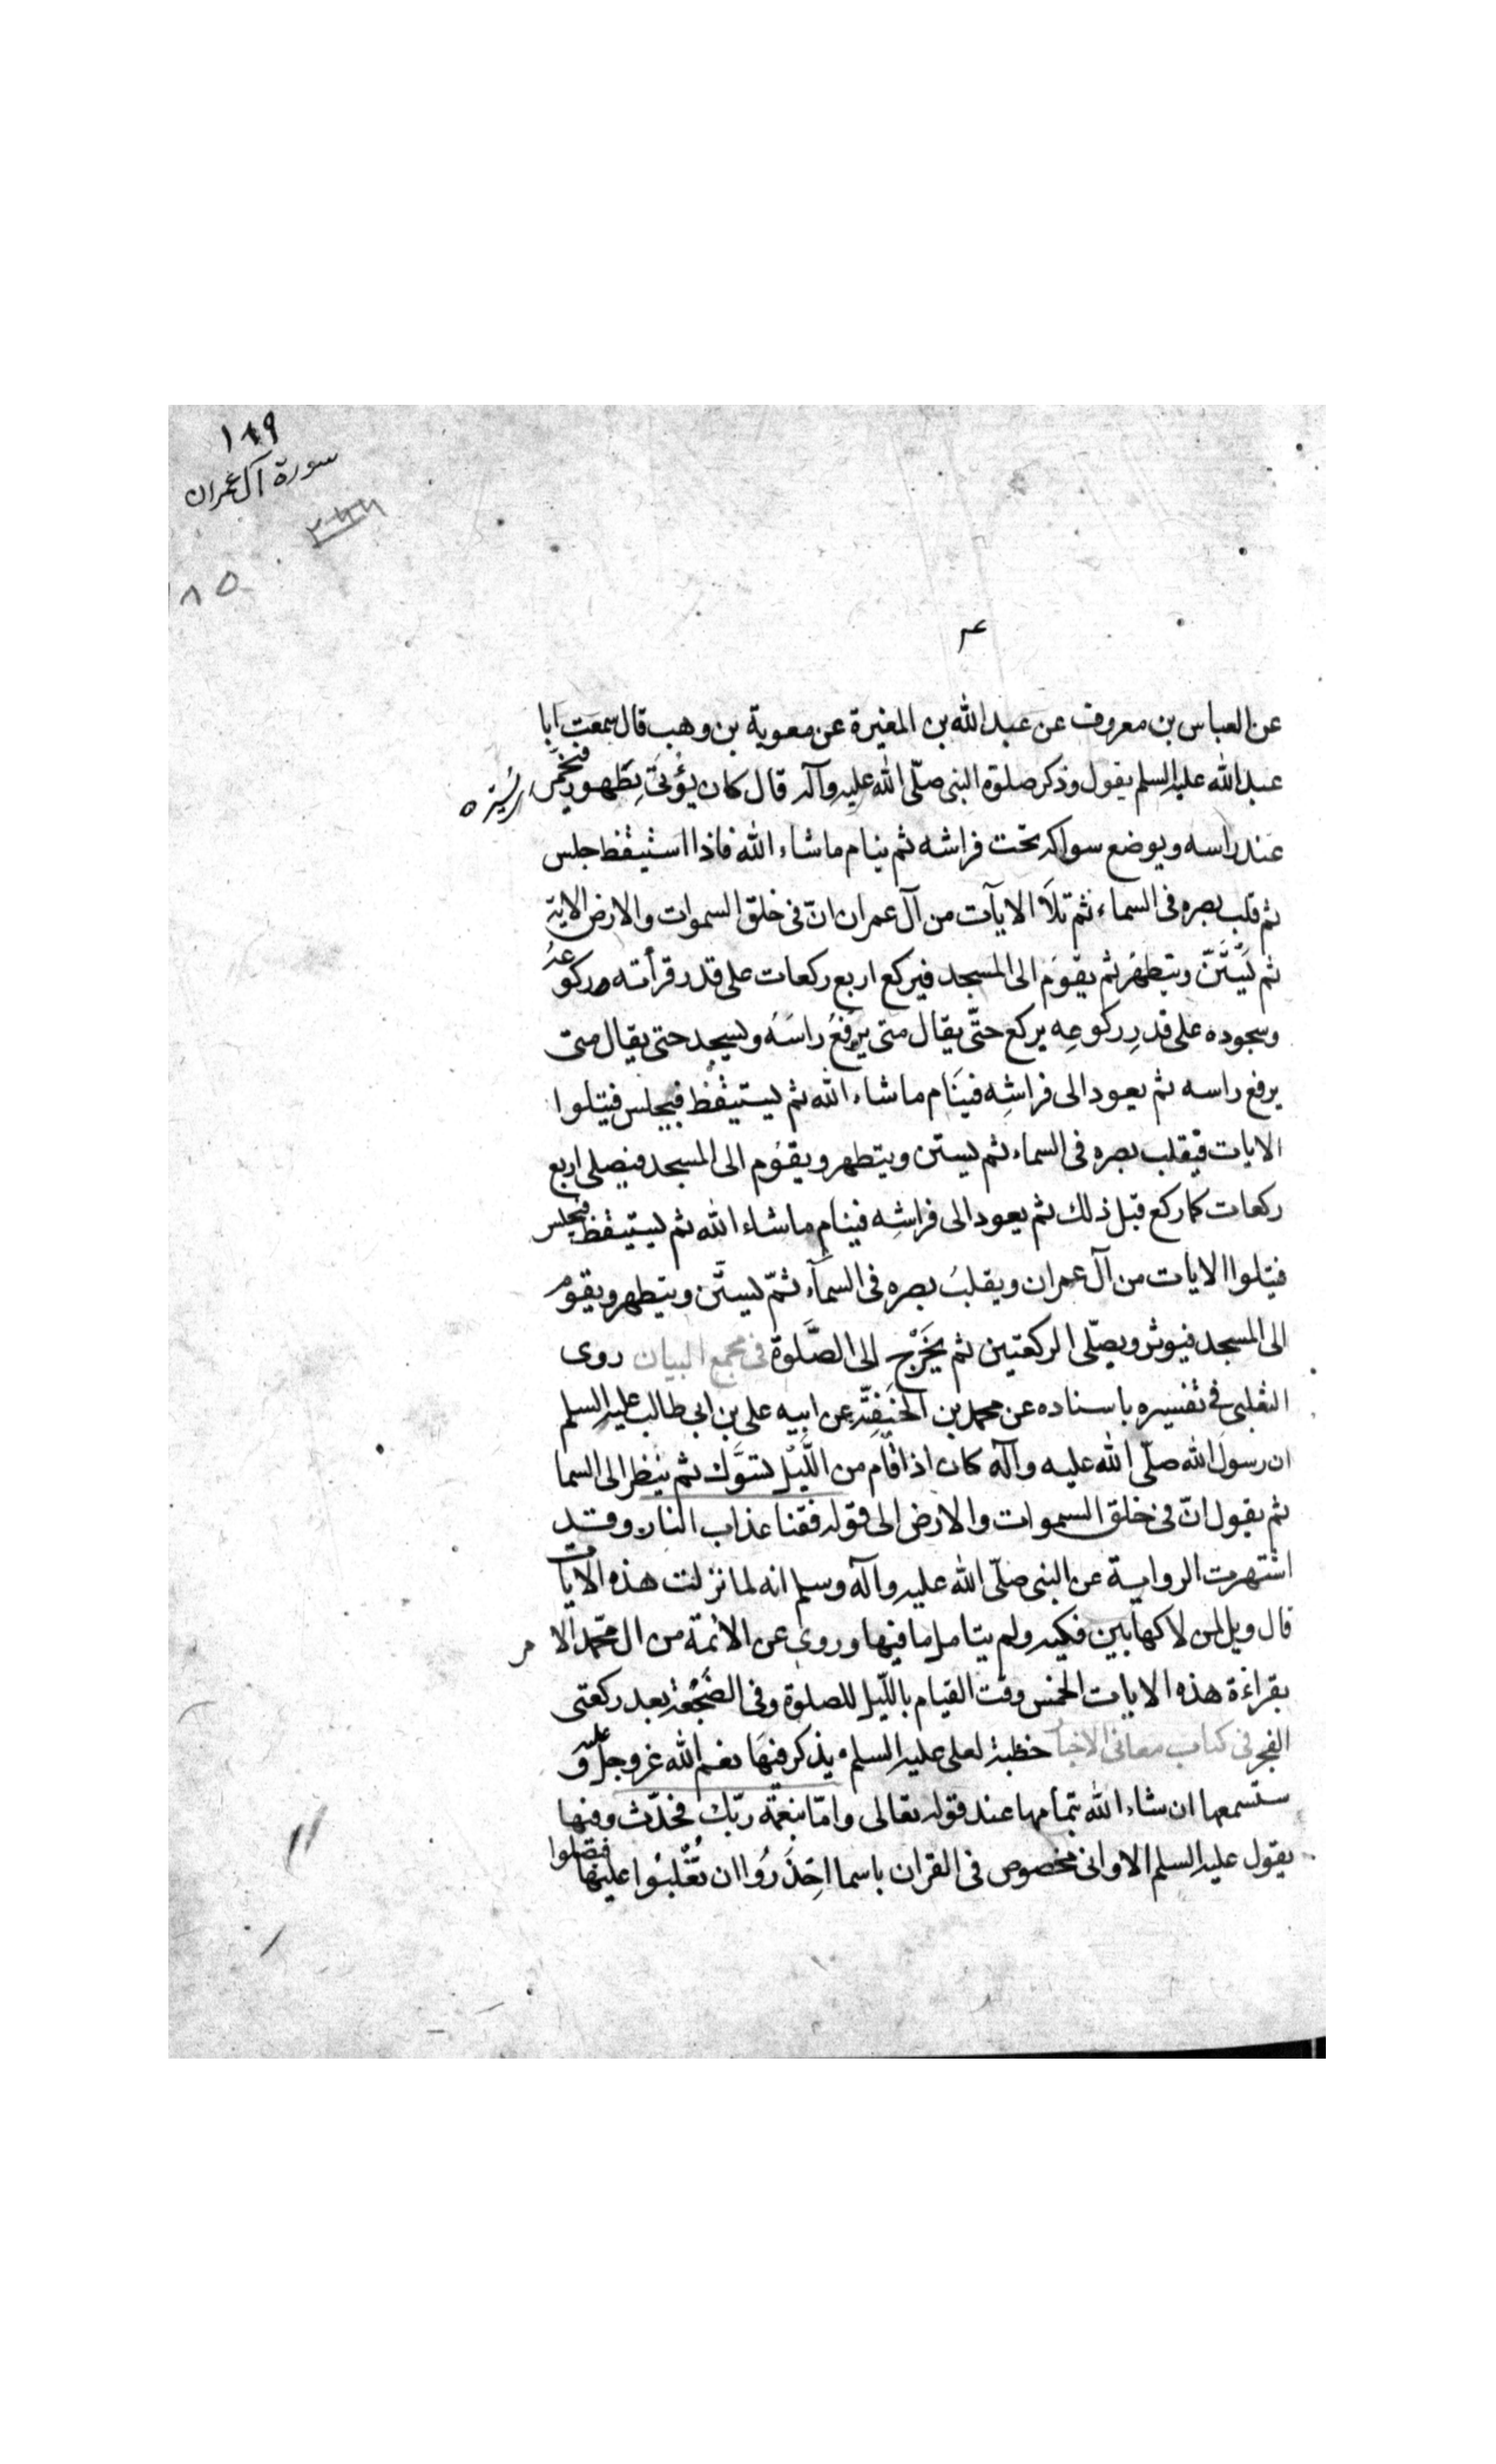 ١٨٩
سورة آل عمران
١٨٥
عن العباس بن معروف عن عبد الله بن المغيرة عن معوية بن وهب قال سمعت ابا
عبد الله عليه السلم يقول وذكر صلوة النبى صلّى الله عليه وآله قال كان يؤتى بطهور فيخمر
عند راسه ويوضع سواكه تحت فراشه ثم ينام ما شاء الله فاذا استيقظ جلس
ثم قلب بصره فى السماء ثم تلا الايآت من آل عمران انّ فى خلق السموات والارض الاية
ثم يستنّ ويتطهر ثم يقوم الى المسجد فيركع اربع ركعات على قدر قرأته ركوعه
وسجوده على قدر ركوعه يركع حتّى يقال متى يرفع راسه ويسجد حتى يقال متى
يرفع راسه ثم يعود الى فراشه فينام ما شاء الله ثم يستيقظ فيجلس فيتلوا
الايات فيقلب بصره فى السماء ثم يستن ويتطهر ويقوم الى المسجد فيصلى اربع
ركعات كما ركع قبل ذلك ثم يعود الى فراشه فينام ما شاء الله ثم يستيقظ فيجلس
فيتلوا الايات من آل عمران ويقلب بصره فى السمآء ثمّ يستنّ ويتطهر ويقوم
الى المسجد فيوتر ويصلّى الركعتين ثم يخرج الى الصّلوة فى مجمع البيان روى
الثعلبى فى تفسيره باسناده عن محمد بن الحنفيّة عن ابيه على بن ابى طالب عليه السلم
ان رسول الله صلّى الله عليه وآله كان اذا قام من اللّيل تسوّك ثم ينظر الى السما
ثم يقول انّ فى خلق السموات والارض الى قوله فقنا عذاب النار وقد
اشتهرت الرواية عن النبى صلّى الله عليه وآله وسلم انه لما نزلت هذه الايات
قال ويل لمن لاكها بين فكيه ولم يتامل ما فيها وروى عن الائمة من ال محمّد الا مر
بقراءة هذه الايات الخمس وقت القيام باللّيل للصلوة وفى الضجعة بعد ركعتى
الفجر فى كتاب معانى الاخبار خطبة لعلى عليه السلم يذكر فيها نعم الله عز وجلّ عليه و
ستسمعها ان شاء الله بتمامها عند قوله تعالى وامّا بنعمة ربّك فحدّث وفيها
يقول عليه السلم الا وانى مخصوص فى القران باسما احذروا ان تغلبوا عليها فتضلوا